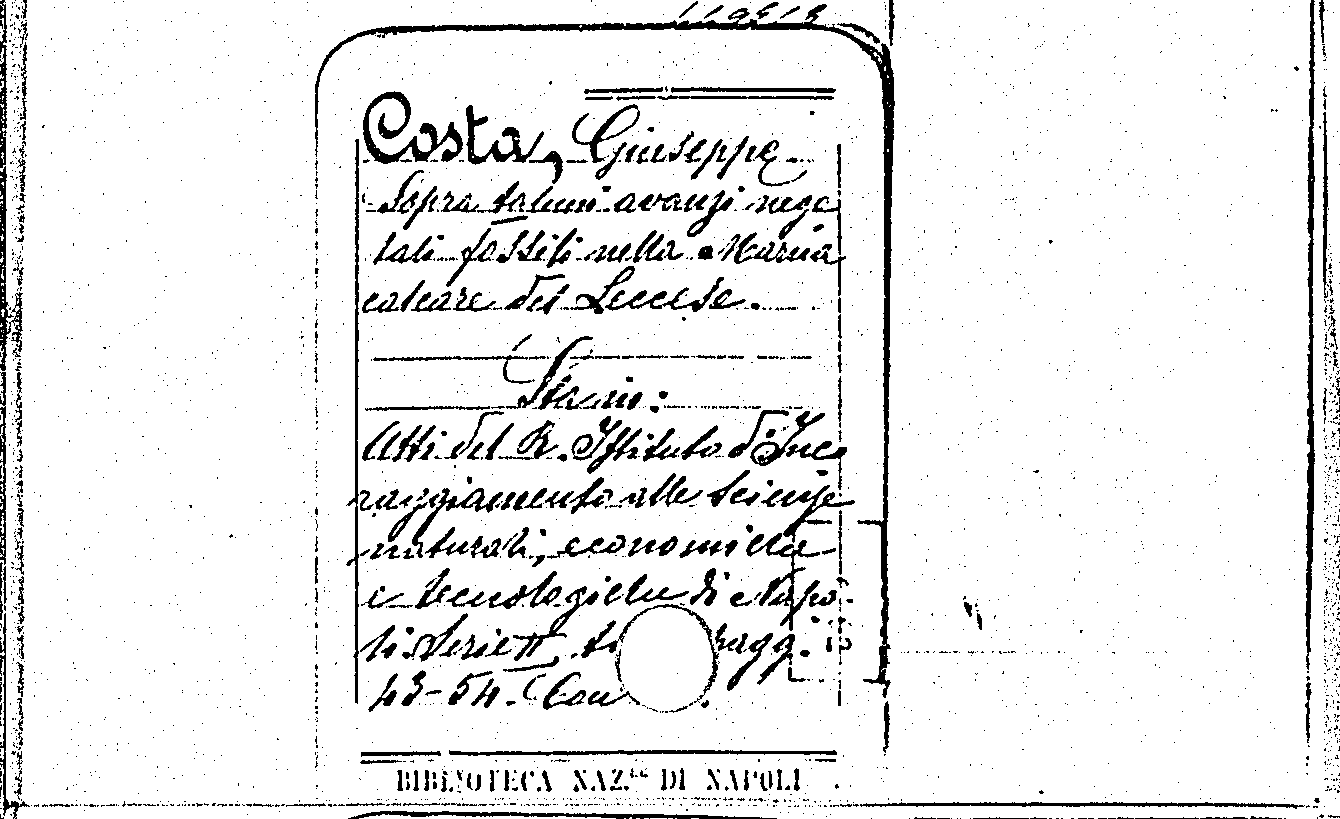 Costa, Giuseppe.
Sopra taluni avanzi vege
tali fossili nella Marna
calcare del Leccese.
Sta in:
Atti del R. Istituto d'Inco
raggiamento alle Scienze
naturali, economiche
e tecnologiche di Napo-
li. Serie II, to pagg.
43-54. Con
BIBLIOTECA NAZ.LE DI NAPOLI